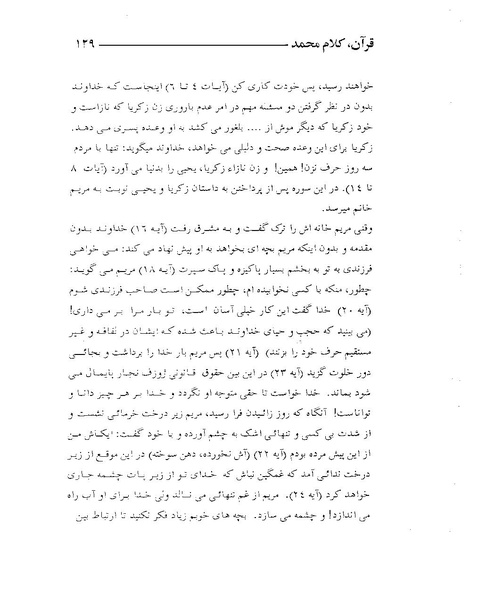 قرآن، کلام محمد ۱۲۹
خواهند رسید، پس خودت کاری کن (آیات ۴ تا ۶) اینجاست که خداوند
بدون در نظر گرفتن دو مسئله مهم در امر عدم باروری زن زکریا که نازاست و
خود زکریا که دیگر موش از .... بلغور می کشد به او وعده پسری می دهد.
زکریا برای این وعده صحت و دلیلی می خواهد، خداوند میگوید: تنها با مردم
سه روز حرف نزن! همین! و زن نازاء زکریا، یحیی را بدنیا می آورد (آیات ۸
تا ۱۴). در این سوره پس از پرداختن به داستان زکریا و یحیی نوبت به مریم
خانم میرسد.
وقتی مریم خانه اش را ترک گفت و به مشرق رفت (آیه ۱۶) خداوند بدون
مقدمه و بدون اینکه مریم بچه ای بخواهد به او پیش نهاد می کند: می خواهی
فرزندی به تو به بخشم بسیار پاکیزه و پاک سیرت (آیه ۱۸) مریم می گوید:
چطور، منکه با کسی نخوابیده ام، چطور ممکن است صاحب فرزندی شوم
(آیه ۲۰) خدا گفت این کار خیلی آسان است، تو بار مرا بر می داری!
(می بینید که حجب و حیای خداوند باعث شده که ایشان در لفافه و غیر
مستقیم حرف خود را بزنند) (آیه ۲۱) پس مریم بار خدا را برداشت و بجائی
دور خلوت گزید (آیه ۲۳) در این بین حقوق قانونی ژوزف نجار پایمال می
شود بماند. خدا خواست تا حقی متوجه او نگردد و خدا بر هر چیز دانا و
تواناست! آنگاه که روز زائیدن فرا رسید، مریم زیر درخت خرمائی نشست و
از شدت بی کسی و تنهائی اشک به چشم آورده و با خود گفت: "یکاش من
از این پیش مرده بودم (آیه ۲۲) (آش نخورده، دهن سوخته) در این موقع از زیر
درخت ندائی آمد که غمگین نباش که خدای تو از زیر پات چشمه جاری
خواهد کرد (آیه ۲۴). مریم از غم تنهائی می نالد ولی خدا برای او آب راه
می اندازد! و چشمه می سازد. بچه های خوبم زیاد فکر نکنید تا ارتباط بین